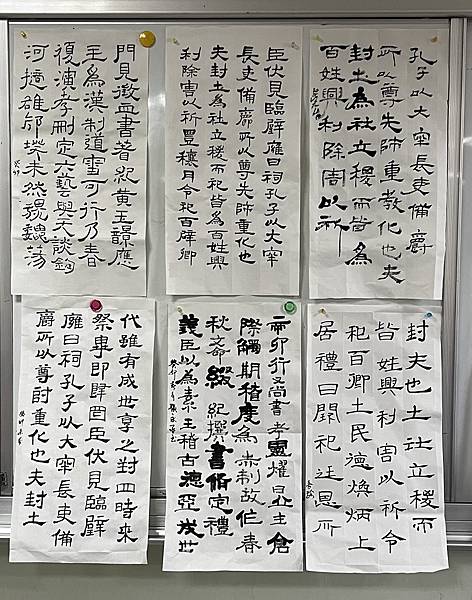 孔子以大宰長吏備爵
所以尊先師重教化也夫
封土為社立稷而皆為
百姓興利除害以祈
臣伏見臨璧雍日祠孔子以大宰
長吏備爵所以尊先師重化也
夫封土為社立稷而祀皆為百姓興
利除害以祈豐穰月令祀百辟卿
門見徵血書著紀黃玉景應
主為漢制道審可行乃春
復演孝刪定六藝與天談鈞
河擿雒卻揆未然魏魏蕩
癸卯
封夫也土社立稷而
皆姓興利害以祈令
祀百卿土民德煥炳上
居禮日聞祀廷恩所
帝卯行又尚書考靈燿丘生倉
際觸期稽度為赤制故作春
秋文命綴紀撰書脩定禮
義臣以為素王稽古德亞皇世
代雖有成世享之封四時來
祭畢即歸国臣伏見臨璧
廱日祠孔子以大宰長吏備
爵所以尊師重化也夫封土